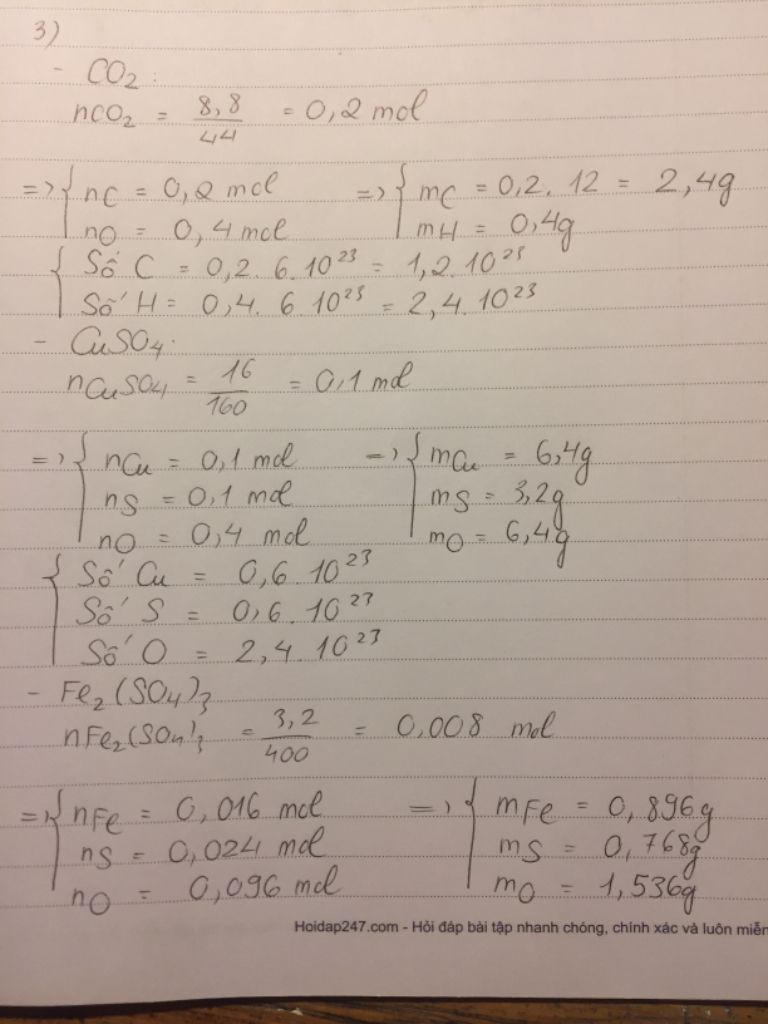 3)
- CO2 :
nCO2 = 8,8/44 = 0,2 mol
=> { nC = 0,2 mol => { mC = 0,2. 12 = 2,4g
nO = 0,4 mol mH = 0,4g
{ Số C = 0,2. 6.10^23 = 1,2.10^23
Số H = 0,4. 6.10^23 = 2,4.10^23
- CuSO4:
nCuSO4 = 16/160 = 0,1 mol
=> { nCu = 0,1 mol => { mCu = 6,4g
nS = 0,1 mol mS = 3,2g
nO = 0,4 mol mO = 6,4g
{ Số Cu = 0,6.10^23
Số S = 0,6.10^23
Số O = 2,4.10^23
- Fe2(SO4)3
nFe2(SO4)3 = 3,2/400 = 0,008 mol
=> { nFe = 0,016 mol => { mFe = 0,896g
nS = 0,024 mol mS = 0,768g
nO = 0,096 mol mO = 1,536g
Hoidap247.com - Hỏi đáp bài tập nhanh chóng, chính xác và luôn miễn